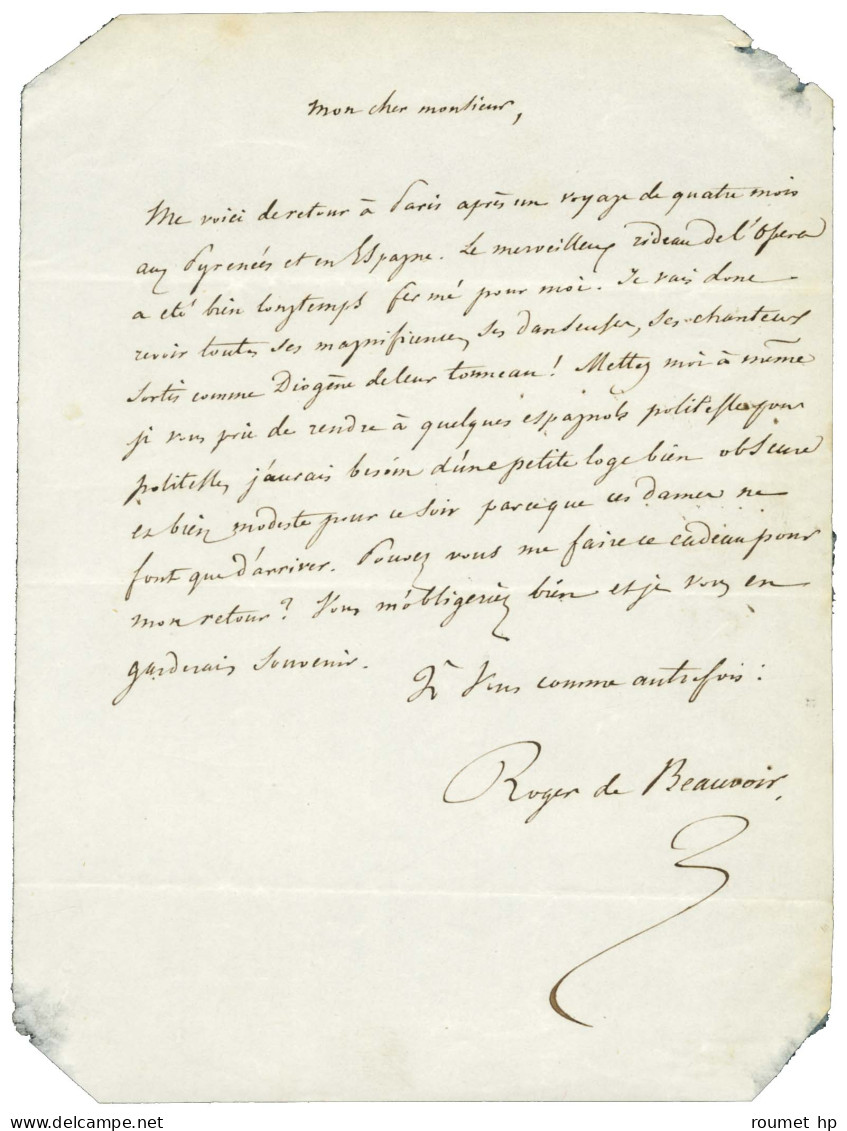 Mon cher monsieur,
Me voici de retour à Paris après un voyage de quatre mois
aux Pyrenées et en Espagne. Le merveilleux rideau de l'Opera
a eté bien longtemps fermé pour moi. Je vais donc
revoir toutes ses magnificences, ses danseuses, ses chanteurs
sortis comme Diogène de leur tonneau! Mettez moi à même
je vous prie de rendre à quelques espagnols politesse pour
politesse, j'aurais besoin d'une petite loge bien obscure
et bien modeste pour ce soir parceque ces dames ne
font que d'arriver. Pouvez vous me faire ce cadeau pour
mon retour? Vous m'obligeriez bien et je vous en
garderais souvenir.
À Vous comme autrefois.
Roger de Beauvoir.
roumet hp